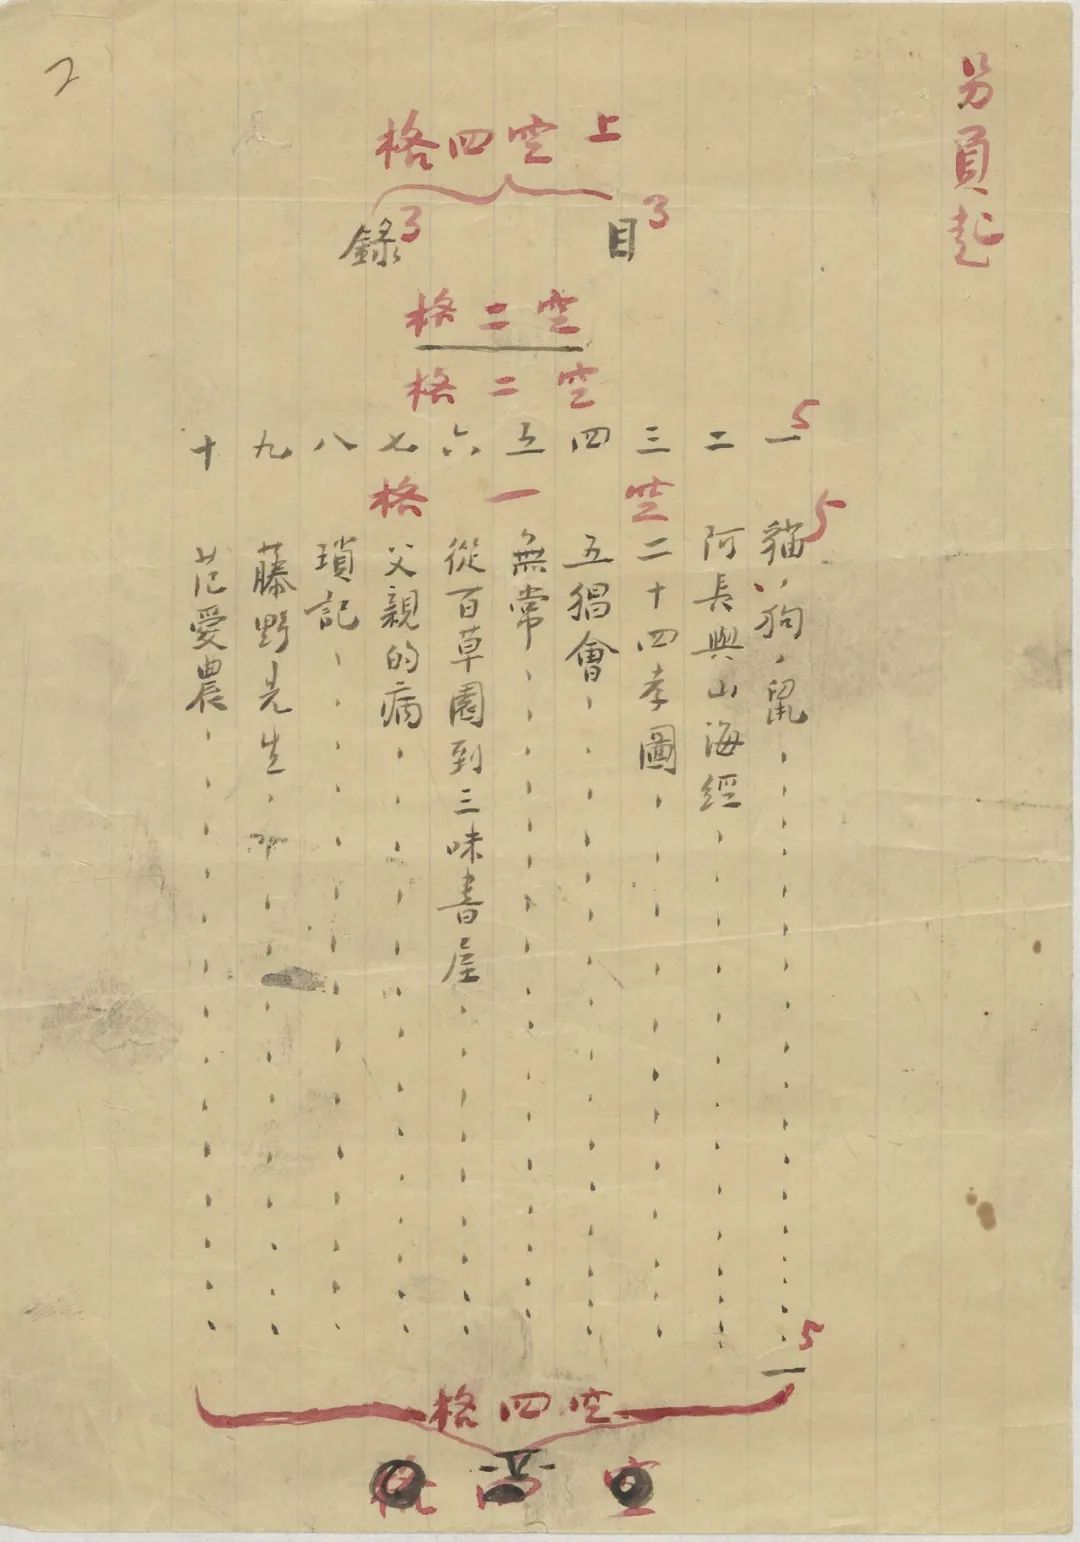 另頁起
2
上空四格
目3
錄3
空二格
空二格
一5 貓,狗,鼠5
二 阿長與山海經
三 二十四孝圖
四 五猖會
五 無常
六 從百草園到三味書屋
七 父親的病
八 瑣記
九 藤野先生
十 范愛農
空一格
一5
空四格
-五-